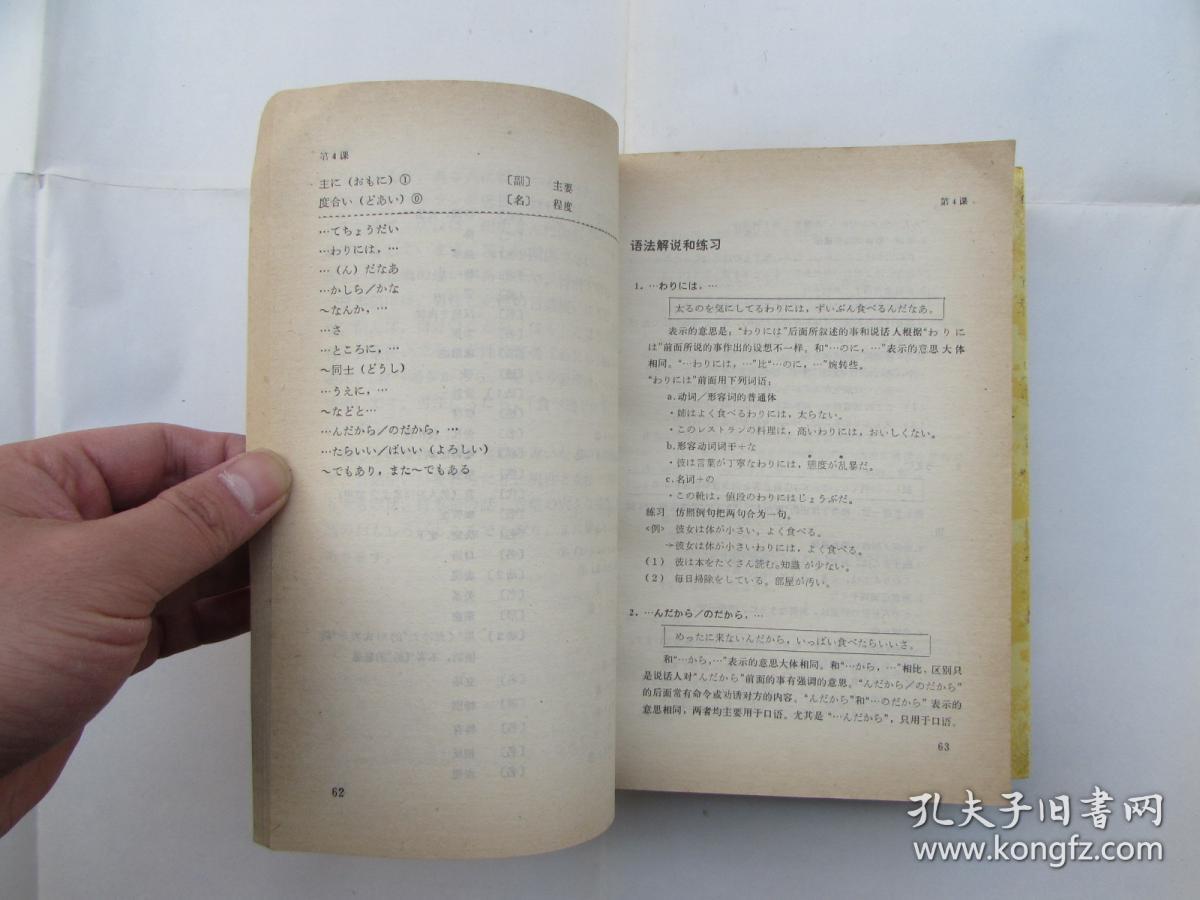 第4课
主に（おもに）① 〔副〕 主要
度合い（どあい）⓪ 〔名〕 程度
…てちょうだい
…わりには，…
…（ん）だなあ
…かしら／かな
～なんか，…
…さ
…ところに，…
～同士（どうし）
…うえに，…
～などと…
…んだから／のだから，…
…たらいい／ばいい（よろしい）
～でもあり，また～でもある
62
第4课
语法解说和练习
1．…わりには，…
太るのを気にしてるわりには，ずいぶん食べるんだなあ。
表示的意思是，“わりには”后面所叙述的事和说话人根据“わりに
は”前面所说的事作出的设想不一样。和“…のに，…”表示的意思大体
相同。“…わりには，…”比“…のに，…”婉转些。
“わりには”前面用下列词语：
a.动词／形容词的普通体
・姉はよく食べるわりには，太らない。
・このレストランの料理は，高いわりには，おいしくない。
b.形容动词词干＋な
・彼は言葉が丁寧なわりには，態度が乱暴だ。
c.名词＋の
・この靴は，値段のわりにはじょうぶだ。
练习 仿照例句把两句合为一句。
〈例〉 彼女は体が小さい。よく食べる。
→彼女は体が小さいわりには，よく食べる。
（1） 彼は本をたくさん読む。知識が少ない。
（2） 毎日掃除をしている。部屋が汚い。
2．…んだから／のだから，…
めったに来ないんだから，いっぱい食べたらいいさ。
和“…から，…”表示的意思大体相同。和“…から，…”相比，区别只
是说话人对“んだから”前面的事有强调的意思。“んだから／のだから”
的后面常有命令或劝诱对方的内容。“んだから”和“…のだから”表示的
意思相同，两者均主要用于口语。尤其是“…んだから”，只用于口语。
63
孔夫子旧书网
www.kongfz.com